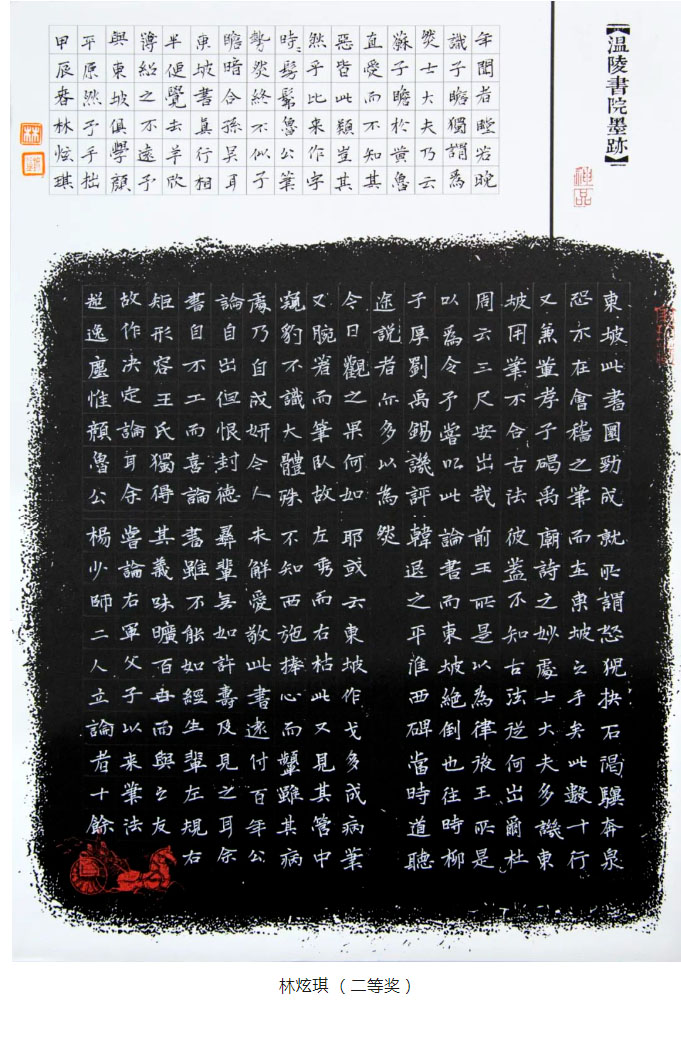 【溫陵書院墨跡】
東坡此書圓勁成就所謂怒猊抉石渴驥奔泉
恐亦在會稽之筆而在東坡之手矣此數十行
又兼董孝子碣禹廟詩之妙處士大夫多譏東
坡用筆不合古法彼蓋不知古法從何出爾杜
周云三尺安出哉前王所是以為律後王所是
以為令予嘗以此論書而東坡絕倒也往時柳
子厚劉禹錫譏評韓退之平淮西碑當時道聽
途說者亦多以為然
今日觀之果何如耶或云東坡作戈多成病筆
又腕着而筆臥故左秀而右枯此又見其管中
窺豹不識大體殊不知西施捧心而顰雖其病
處乃自成妍令人未解愛敬此書遠付百年公
論自出但恨封德彝輩無如許壽及見之耳余
書自不工而喜論書雖不能如經生輩左規右
矩形容王氏獨得其義味曠百世而與之友
故作決定論耳余嘗論右軍父子以來筆法
超逸塵惟顏魯公楊少師二人立論者十餘
年聞者瞠若晚
識子瞻獨謂為
然士大夫乃云
蘇子瞻於黃魯
直愛而不知其
惡皆此類豈其
然乎比來作字
時々髣髴魯公筆
勢然終不似子
瞻暗合孫吳耳
東坡書真行相
半便覺去羊欣
薄紹之不遠予
與東坡俱學顏
平原然予手拙
甲辰春林炫琪
林炫琪（二等奖）